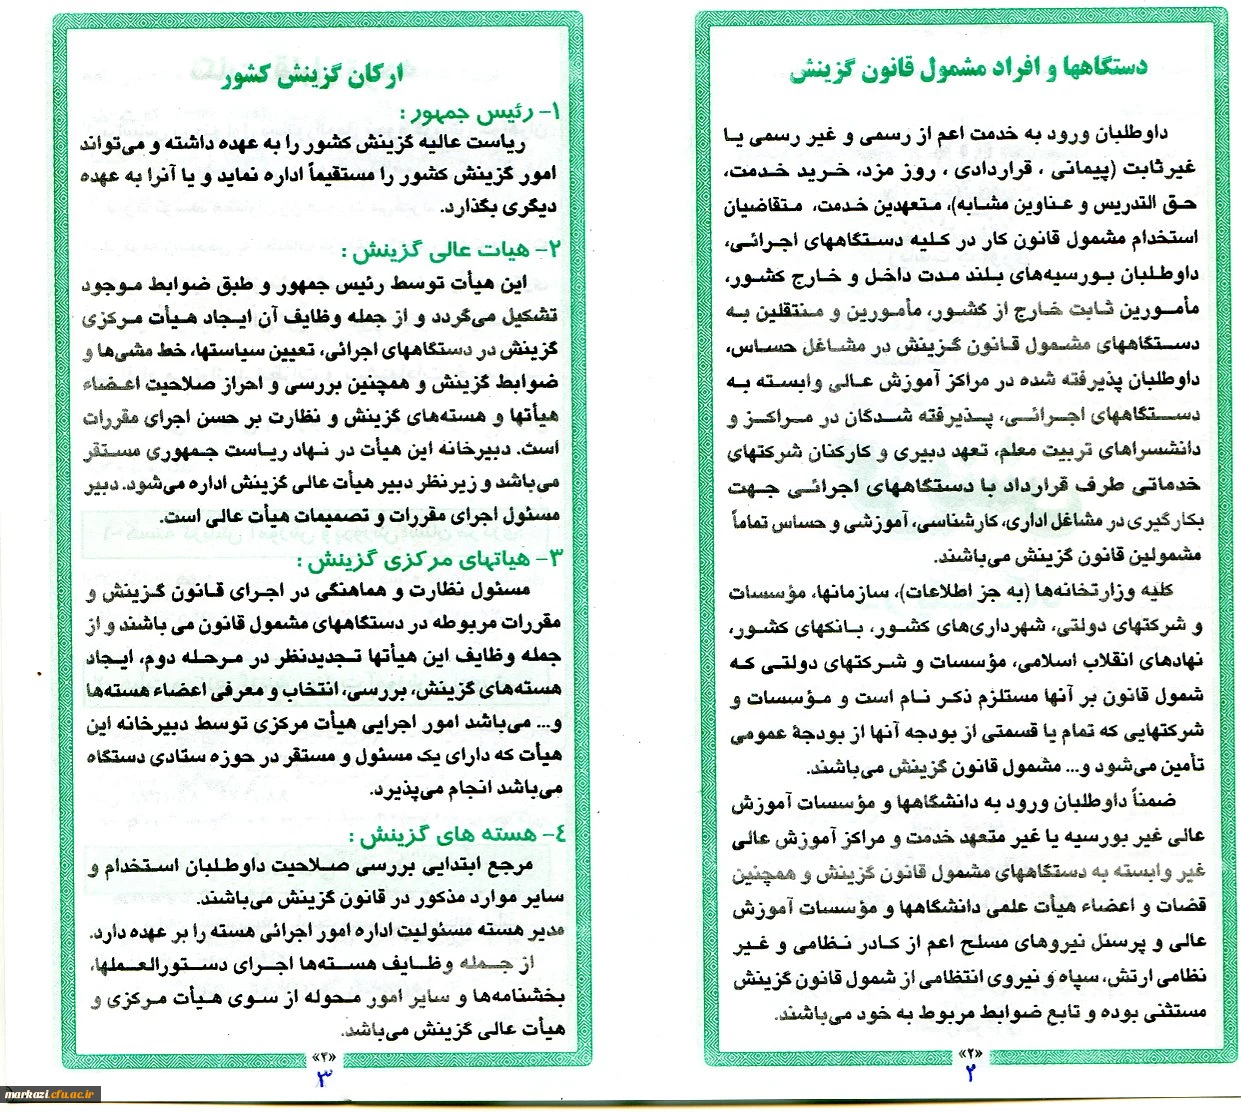 دستگاهها و افراد مشمول قانون گزینش
داوطلبان ورود به خدمت اعم از رسمی و غیر رسمی یـا
غیرثابت (پیمانی ، قراردادی ، روز مزد، خـرید خـدمت،
حـق التدریس و عـناوین مشابه)، متعهدین خدمت، متقاضیان
استخدام مشمول قانون کار در کـلیه دسـتگاههای اجـرائـی،
داوطـلبان بـورسیه‌های بـلند مـدت داخـل و خـارج کشـور،
مأمـورین ثـابت خـارج از کشـور، مأمـورین و مـنتقلین بـه
دسـتگاههای مشـمول قـانون گـزینش در مشـاغل حسـاس،
داوطلبان پذیرفته شده در مراکز آموزش عـالی وابسـته بـه
دسـتگاههای اجـرائـی، پـذیرفته شـدگان در مـراکـز و
دانشسراهای تربیت معلم، تعهد دبیری و کارکنان شرکتهای
خدماتی طرف قرارداد بـا دسـتگاههای اجرائـی جـهت
بکارگیری در مشاغل اداری، کارشناسی، آموزشی و حساس تماماً
مشمولین قانون گزینش می‌باشند.
کلیه وزارتخانه‌ها (به جز اطلاعات)، سازمانها، مؤسسات
و شرکتهای دولتی، شهرداری‌های کشـور، بـانکهای کشور،
نهادهای انقلاب اسلامی، مؤسسات و شـرکتهای دولتـی کـه
شمول قانون بر آنها مستلزم ذکر نام است و مـؤسسات و
شرکتهایی که تمام یا قسمتی از بودجه آنها از بودجۀ عمومی
تأمین می‌شود و... مشمول قانون گزینش می‌باشند.
ضمناً داوطلبان ورود به دانشگاهها و مؤسسات آموزش
عالی غیر بورسیه یا غیر متعهد خدمت و مراکز آموزش عالی
غیر وابسته به دستگاههای مشمول قانون گزینش و همچنین
قضات و اعضاء هیأت علمی دانشگاهها و مؤسسات آموزش
عالی و پرسنل نیروهای مسلح اعم از کـادر نـظامی و غـیر
نظامی ارتش، سپاه و نیروی انتظامی از شمول قانون گزینش
مستثنی بوده و تابع ضوابط مربوط به خود می‌باشند.
«۲»
۲
ارکان گزینش کشور
۱- رئیس جمهور :
ریاست عالیه گزینش کشور را به عهده داشته و می‌تواند
امور گزینش کشور را مستقیماً اداره نماید و یـا آنرا به عهده
دیگری بگذارد.
۲- هیات عالی گزینش :
این هیأت توسط رئیس جمهور و طبق ضوابط مـوجود
تشکیل می‌گردد و از جمله وظایف آن ایـجاد هـیأت مـرکزی
گزینش در دستگاههای اجرائی، تعیین سیاستها، خط مشی‌ها و
ضوابط گزینش و همچنین بررسی و احراز صلاحیت اعـضاء
هیأتها و هسته‌های گزینش و نظارت بر حسن اجرای مقررات
است. دبیرخانه این هیأت در نـهاد ریـاست جـمهوری مسـتقر
می‌باشد و زیر نظر دبیر هیأت عالی گزینش اداره می‌شود. دبیر
مسئول اجرای مقررات و تصمیمات هیأت عالی است.
۳- هیاتهای مرکزی گزینش :
مسئول نظارت و هماهنگی در اجـرای قـانون گـزینش و
مقررات مربوطه در دستگاههای مشمول قانون می باشند و از
جمله وظایف این هیأتها تـجدیدنظر در مـرحـله دوم، ایـجاد
هسته‌های گزینش، بررسی، انتخاب و معرفی اعضاء هسته‌ها
و... می‌باشد امور اجرایی هیأت مرکزی توسط دبیرخانه این
هیأت که دارای یک مسئول و مستقر در حوزه ستادی دستگاه
می‌باشد انجام می‌پذیرد.
٤- هسته های گزینش :
مرجع ابتدایی بررسی صـلاحیت داوطـلبان اسـتخدام و
سایر موارد مذکور در قانون گزینش می‌باشند.
مدیر هسته مسئولیت اداره امور اجرائی هسته را بر عهده دارد.
از جـمله وظـایف هسـته‌ها اجـرای دسـتورالعـملها،
بخشنامه‌ها و سایر امور مـحوله از سـوی هـیأت مـرکزی و
هیأت عالی گزینش می‌باشد.
«۲»
۳
markazi.cfu.ac.ir